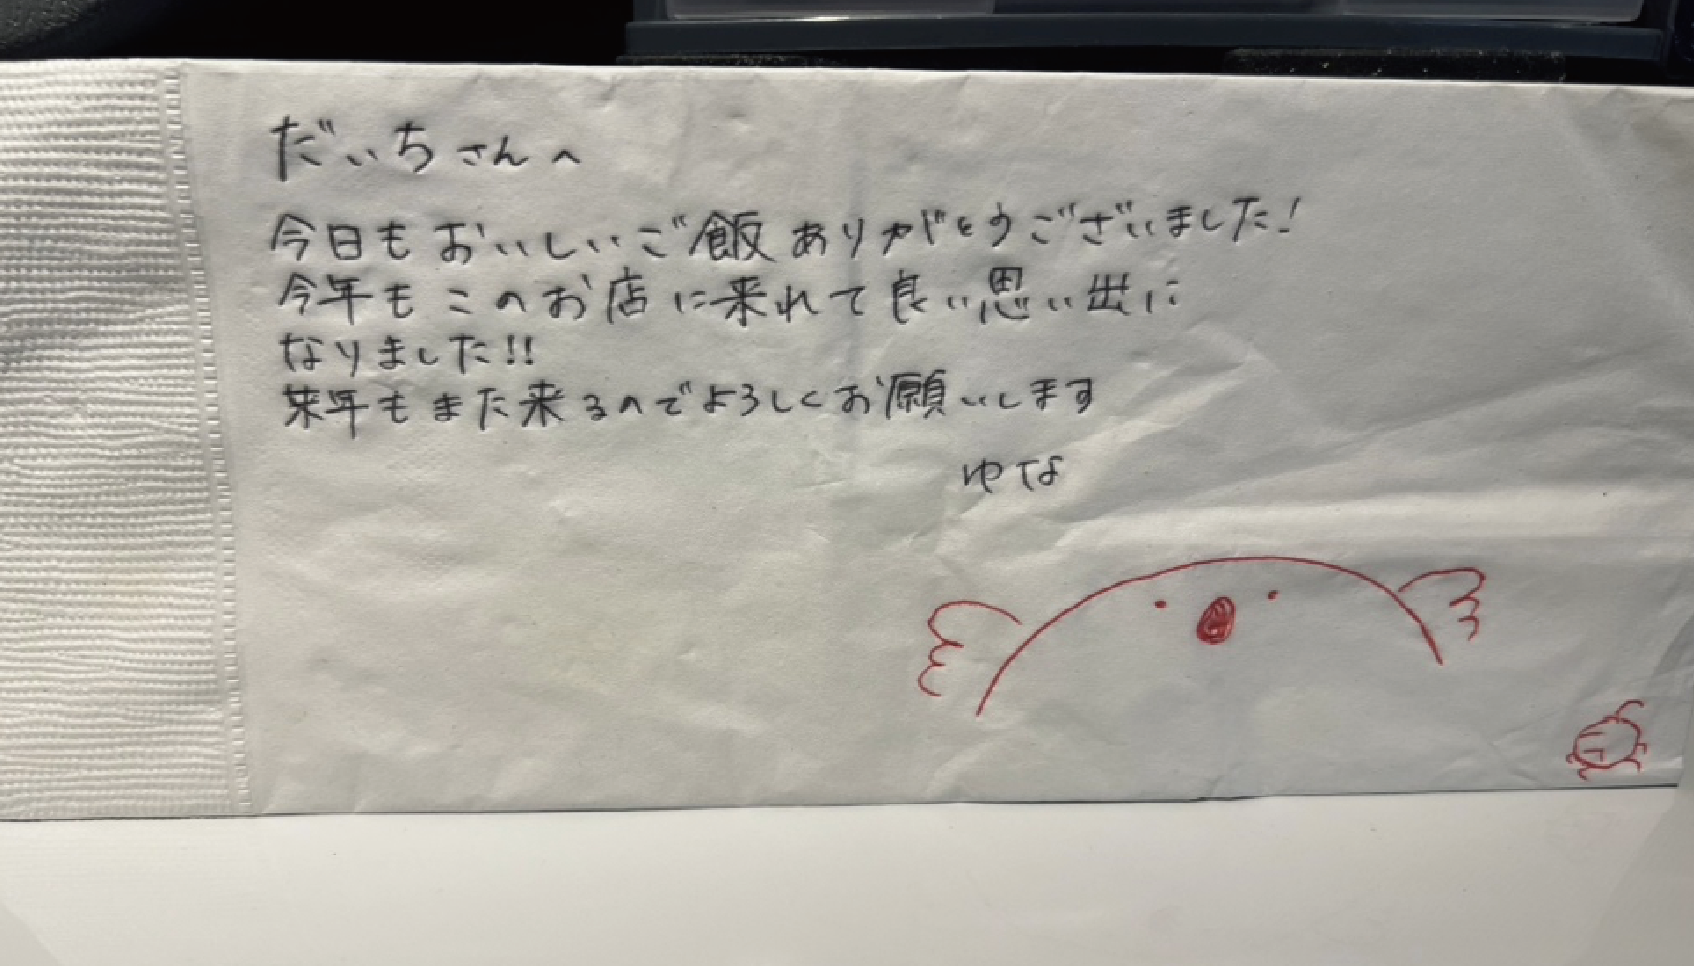 だいちさんへ
今日もおいしいご飯ありがとうございました!
今年もこのお店に来れて良い思い出に
なりました!!
来年もまた来るのでよろしくお願いします
ゆな